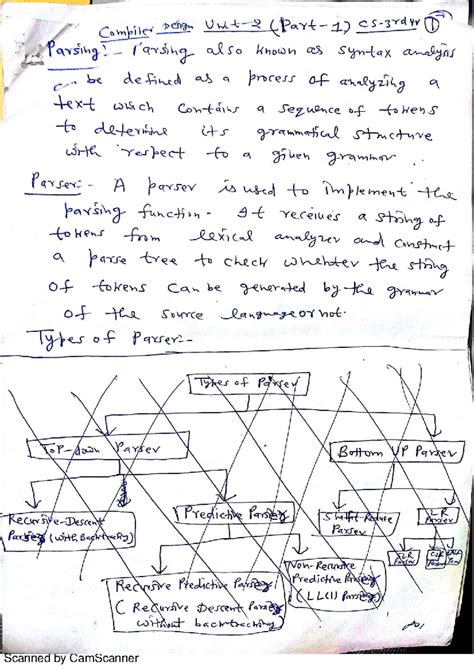 Compiler Design Unit-2 (Part-1) CS-3rd Yr ①
Parsing:- Parsing also known as syntax analysis
can be defined as a process of analyzing a
text which contains a sequence of tokens
to determine its grammatical structure
with respect to a given grammar..
Parser:- A parser is used to implement the
parsing function. It receives a string of
tokens from lexical analyzer and construct
a parse tree to check whether the string
of tokens can be generated by the grammar
of the source language or not.
Types of Parser:-
Types of Parser
Top-down Parser
Bottom UP Parser
Recursive-Descent
Parsing (with Backtracking)
Predictive Parsing
Shift-Reduce
Parser
LR
Parser
Recursive Predictive Parsing
( Recursive Descent Parsing
without backtracking)
Non-Recursive
Predictive Parsing
(LL(1) Parsing)
SLR
Parser
CLR
Scanned by CamScanner